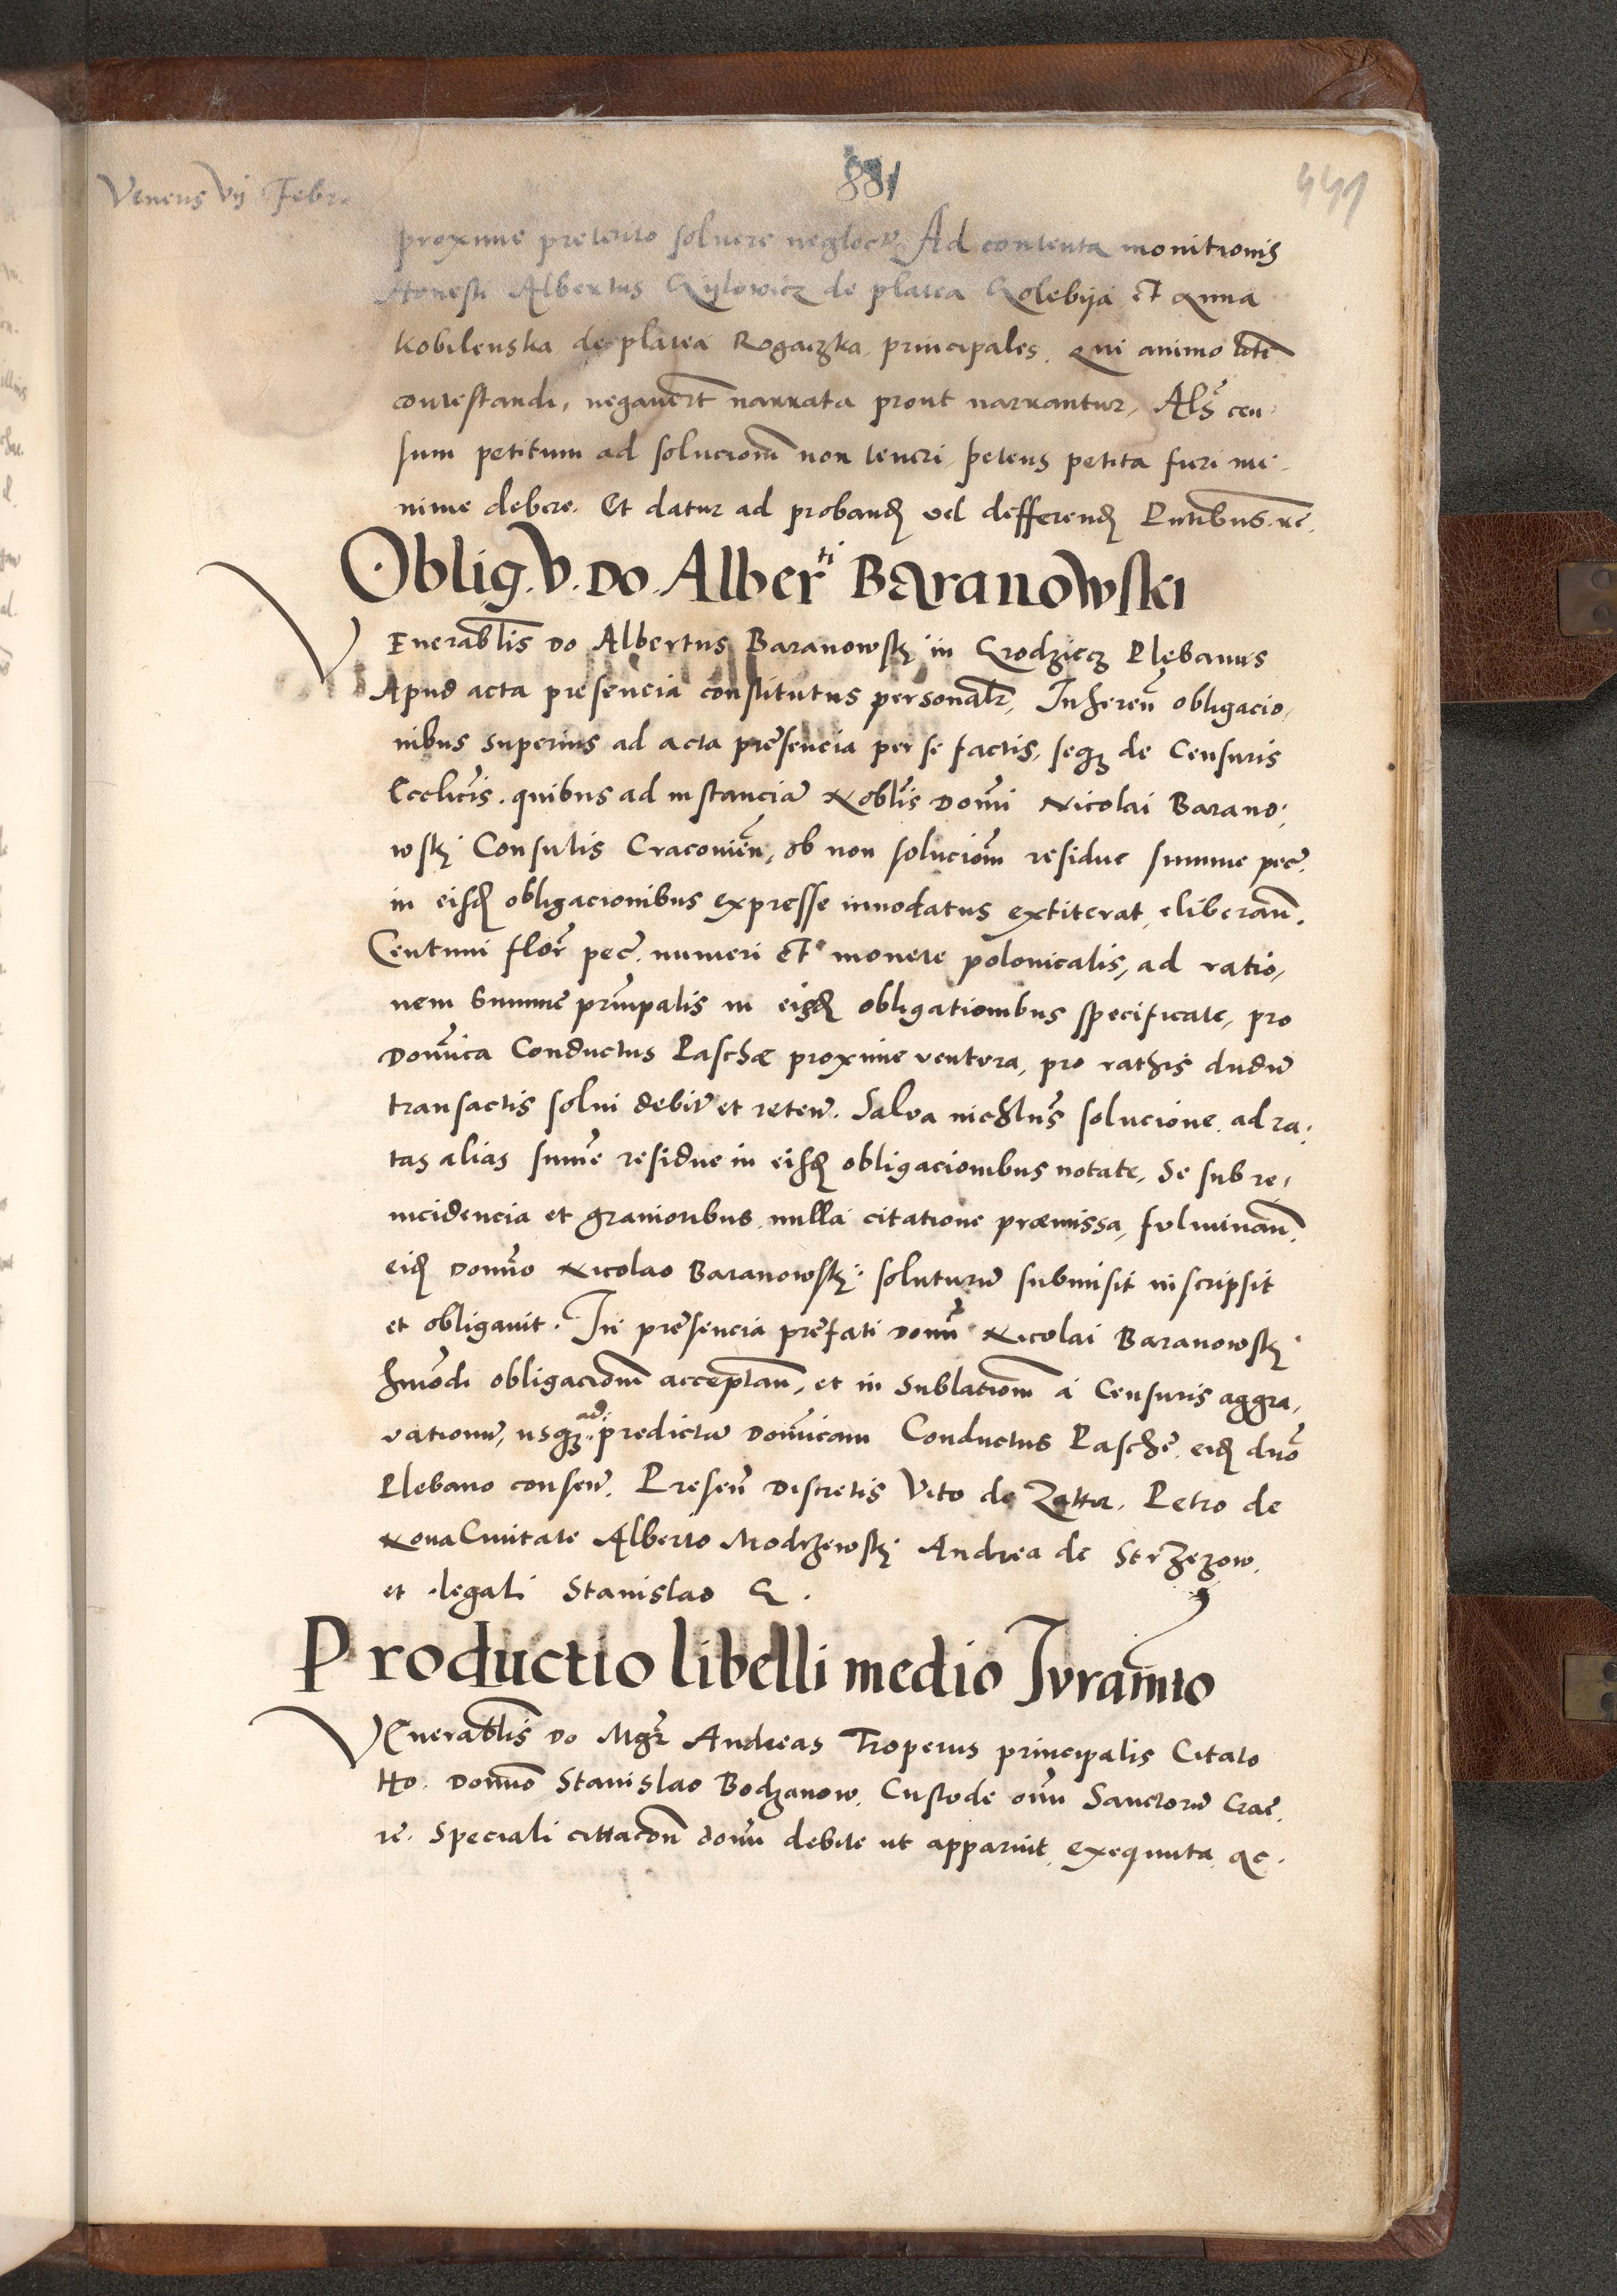 881
441
Veneris vij Febr
proxime preterito soluere neglocr. Ad contenta monitionis
Honesti Albertus Gijlowicz de platea Golebija et Anna
Kobilenska de platea Rogaczka principales. Qui animo litē
contestandi, negauerūt narrata prout narrantur, Als cen-
sum petitum ad solucionē non teneri, petens petita fieri mi-
nime debere. Et datur ad proband vel defferend Putibus. rē.
Oblig. V. Do. Alberti Baranowski
VEnerablis Do Albertus Baranowsky in Grodziecz Plebanus
Apud acta presencia constitutus personalr, Inheren obligacio-
nibus superius ad acta presencia per se factis, seq de Censuris
Ecclicis. quibus ad instanciā Noblis Domi Nicolai Barano-
wsky Consulis Cracouien, ob non solucionē residue summe pec.
in eisd obligacionibus expresse innodatus extiterat, eliberan.
Centum flor pec. numeri et monete polonicalis, ad ratio-
nem summe prinpalis in eisd obligationibus specificate, pro
Domica Conductus Paschæ proxime ventura, pro rathis dudū
transactis solui debit et reten. Salua nichlus solucione ad ra-
tas alias summe residue in eisd obligacionibus notate, Se sub re-
incidencia et grauioribus nulla citatione præmissa, fulminan.
eid Domno Nicolao Baranowsky soluturū submisit inscripsit
et obligauit. In presencia prefati Domi Nicolai Baranowsky
hmodi obligacionē acceptan, et in sublationē a Censuris aggra-
vationū, usq ad predictā Domicam Conductus Pasche eid dno
Plebano consen. Presen Discretis Vito de Zattor. Petro de
Noua Ciuitate Alberto Modrzewsky Andrea de Strzezow.
et legali Stanislao G.
Productio libelli medio Juramto
VEnerablis Do Mgr Andreas Troperus principalis Citato
Ho. Domno Stanislao Bodzanow. Custode om Sanctorū Crac.
re. speciali cittacon domi debite ut apparuit exequuta ac.